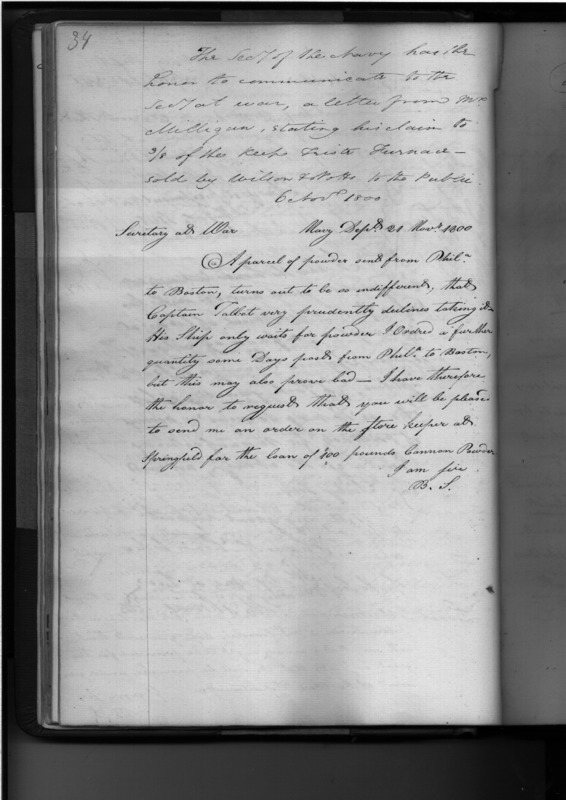 34
The Secy of the Navy has the
honor to communicate to the
Secy at war, a letter from Mr
Milligan, stating his claim to
3/8 of the Keep Triste Furnace —
sold by Wilson & Notts to the Public
6 Novr 1800
Secretary at War Navy Dept. 21 Novr. 1800
A parcel of powder sent from Phila
to Boston, turns out to be so indifferent, that
Captain Talbot very prudently declines taking it —
His Ship only waits for powder I Ordred a further
quantity some Days past from Phila to Boston,
but this may also prove bad — I have therefore
the honor to request that you will be pleased
to send me an order on the Store keeper at
Springfield for the loan of pounds Cannon Powder
I am sir
B. S.